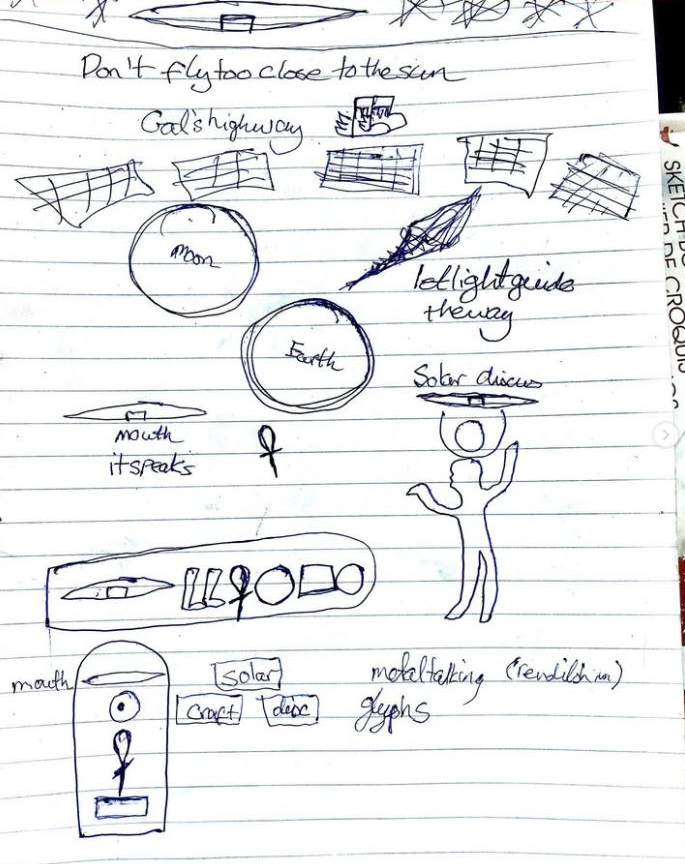 Don't fly too close to the sun
God's highway
moon
let light guide
the way
Earth
Solar discus
mouth
it speaks
mouth
solar
metal talking
craft
disc
glyphs
SKETCH
DE CROQUIS